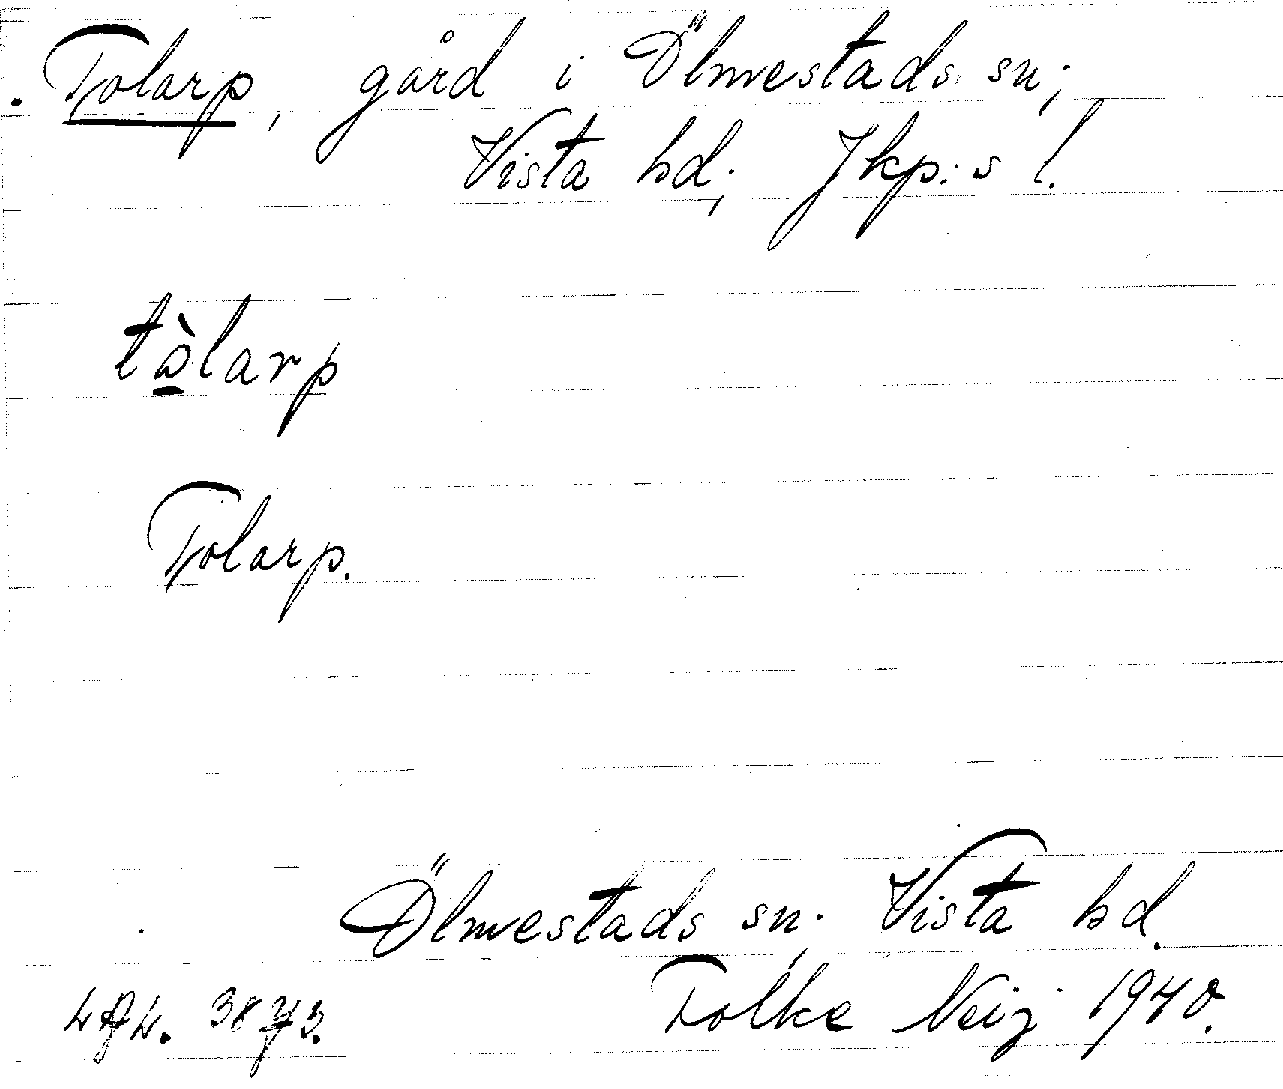 Tolarp, gård i Ölmestads sn;
Vista hd; Jkp:s l.
tòlarp
Tolarp.
Ölmestads sn; Vista hd.
Folke Neij 1940.